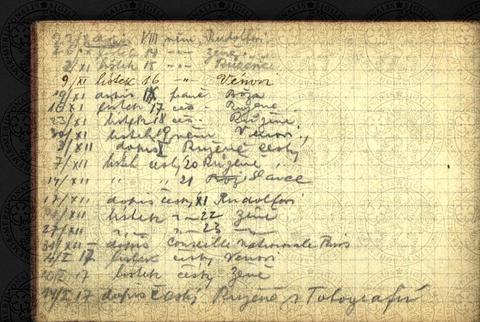 22/X dopis VIII něm. Rudolfovi
lístek 14 -„- ženě
2/XI lístek 15 -„- Růženě
9/XI lístek 16 -„- Vénovi
19/XI dopis IX paně Bóža
lístek 17 čes. Růženě
23/XI lístek 18 čes. Růženě
30/XI lístek 19 něm Vénovi
3/XII dopis X Růženě česky
7/XII lístek česky 20 Růženě
14/XII „ „ 21 Slávce
17/XII dopis česky XI Rudolfovi
lístek -„- 22 ženě
27/XII -„- -„- 23 -„-
31/XII dopis Conseille nationale
4/I 17 lístek česky Vénovi
10/I 17 lístek česky ženě
14/I 17 dopis český Růženě s fotografií